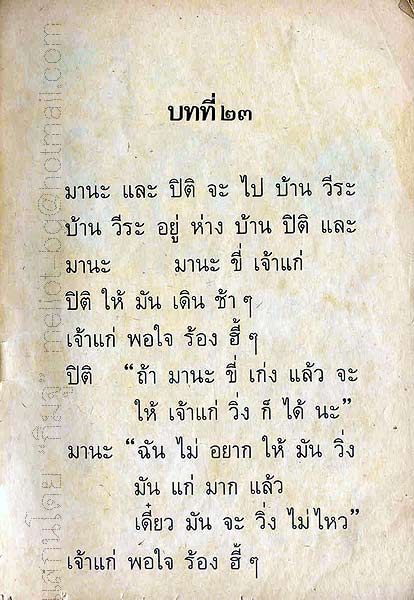 บทที่ ๒๓
มานะ และ ปิติ จะ ไป บ้าน วีระ
บ้าน วีระ อยู่ ห่าง บ้าน ปิติ และ
มานะ มานะ ขี่ เจ้าแก่
ปิติ ให้ มัน เดิน ช้า ๆ
เจ้าแก่ พอใจ ร้อง ฮี้ ๆ
ปิติ “ถ้า มานะ ขี่ เก่ง แล้ว จะ
ให้ เจ้าแก่ วิ่ง ก็ ได้ นะ”
มานะ “ฉัน ไม่ อยาก ให้ มัน วิ่ง
มัน แก่ มาก แล้ว
เดี๋ยว มัน จะ วิ่ง ไม่ไหว”
เจ้าแก่ พอใจ ร้อง ฮี้ ๆ